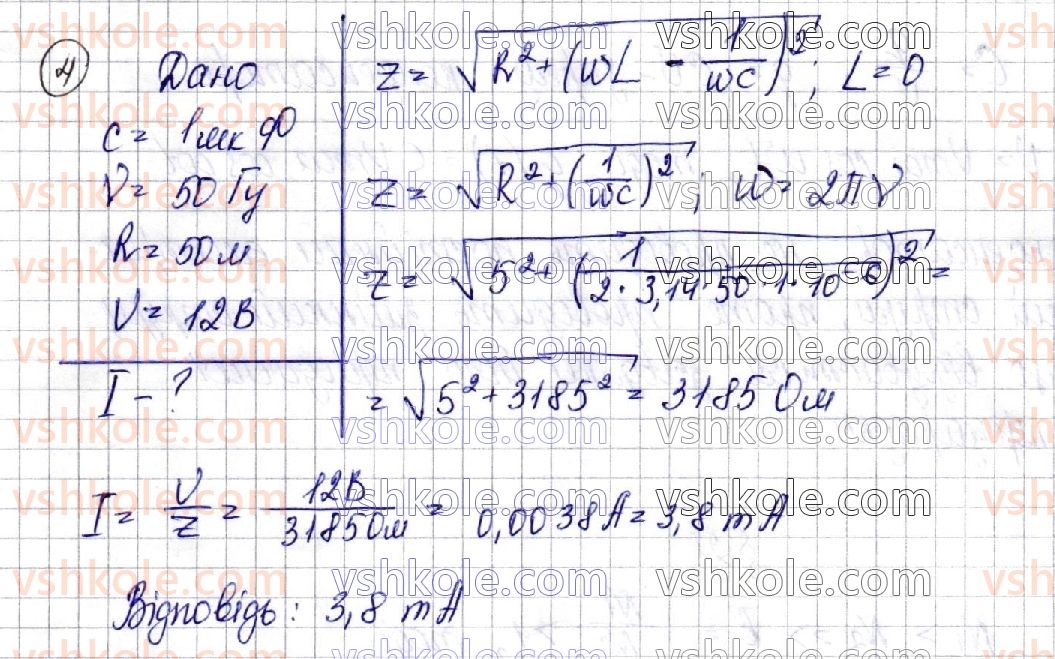 4 Дано
C = 1 мкФ
ν = 50 Гц
R = 5 Ом
U = 12 В
I - ?
Z = √(R² + (ωL - 1/ωC)²); L = 0
Z = √(R² + (1/ωC)²); ω = 2πν
Z = √(5² + (1/(2·3,14·50·1·10⁻⁶))²) =
= √(5² + 3185²) = 3185 Ом
I = U/Z = 12В/3185 Ом = 0,0038 А = 3,8 mA
Відповідь: 3,8 mA
vshkole.com